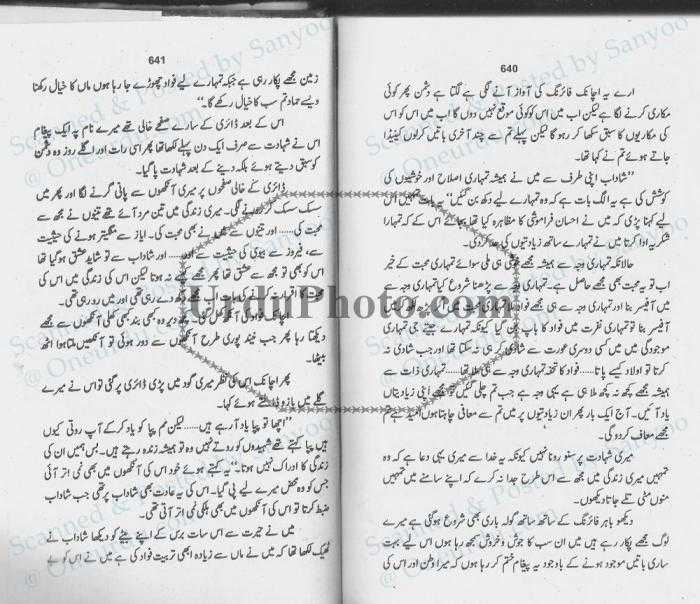 640
ارے یہ اچانک فائرنگ کی آواز آنے لگی ہے لگتا ہے دشمن پھر کوئی
مکاری کرنے لگا ہے لیکن اب میں اس کو کوئی موقع نہیں دوں گا اب میں اس کو اس
کی مکاریوں کا سبق سکھا کر رہو گا لیکن پہلے تم سے چند آخری باتیں کرلوں کنیڈا
جاتے ہوئے تم نے کہا تھا۔
"شاداب اپنی طرف سے میں نے ہمیشہ تمہاری اصلاح اور خوشیوں کی
کوشش کی ہے یہ الگ بات ہے کہ وہ تمہارے لیے دکھ بن گئیں" یہ بات تمہیں اس
لیے کہنا پڑی کہ میں نے احسان فراموشی کا مظاہرہ کیا تھا بجائے اس کے کہ تمہارا
شکریہ ادا کرتا میں نے تمہارے ساتھ زیادتیوں کی حد کر دی۔
حالانکہ تمہاری وجہ سے ہمیشہ مجھے خوشی ہی ملی سوائے تمہاری محبت کے خیر
اب تو یہ محبت بھی مجھے حاصل ہے۔ تمہاری وجہ سے پڑھنا شروع کیا تمہاری وجہ سے
میں آفیسر بنا اور تمہاری وجہ سے ہی مجھے فواد
آفیسر بنا تو تمہاری نفرت میں فواد کا باپ بن گیا کیونکہ تمہارے جیتے جی تمہاری
موجودگی میں میں کسی دوسری عورت سے شادی کر ہی نہ سکتا تھا اور جب شادی نہ
کرتا تو اولاد کیسے پاتا.....فواد کا تحفہ تمہاری وجہ سے ہی ملا تھا تمہاری ذات سے
ہمیشہ مجھے کچھ نہ کچھ ملا ہی ہے یہی وجہ ہے کہ جب تم چلی گئیں تو مجھے اپنی زیادتیاں
یاد آئیں۔ آج ایک بار پھر ان زیادتیوں پر میں تم سے معافی چاہتا ہوں امید ہے تم
مجھے معاف کر دو گی۔
میری شہادت پر سنو رونا نہیں کیونکہ یہ خدا سے میری یہی دعا ہے کہ وہ
تمہیں میری زندگی میں مجھ سے اس طرح جدا نہ کرے کہ اپنے سامنے میں تمہیں
منوں مٹی تلے جاتا دیکھوں۔
دیکھو باہر فائرنگ کے ساتھ ساتھ گولہ باری بھی شروع ہو گئی ہے میرے
لوگ مجھے پکار رہے ہیں میں ان سب کا جوش و خروش سمجھ رہا ہوں اس لیے بہت
ساری باتیں موجود ہونے کے باوجود یہ پیغام ختم کر رہا ہوں کہ میرا وطن اور اس کی
641
زمین مجھے پکار رہی ہے جبکہ تمہارے لیے فواد چھوڑے جا رہا ہوں ماں کا خیال رکھنا
ویسے حماد تم سب کا خیال رکھے گا۔"
اس کے بعد ڈائری کے سارے صفحے خالی تھے میرے نام یہ ایک پیغام
اس نے شہادت سے صرف ایک دن پہلے لکھا تھا پھر اسی رات اور اگلے روز وہ دشمن
کو سبق دیتے ہوئے بلکہ دینے کے بعد شہادت پا گیا۔
ڈائری کے خالی صفحوں پر میری آنکھوں سے پانی گرنے لگا اور پھر میں
سسک سسک کر رونے لگی۔ میری زندگی میں تین مرد آئے تھے تینوں نے مجھ سے
محبت کی..... اور تینوں سے میں نے بھی محبت کی۔ ایاز سے منگیتر ہونے کی حیثیت
سے، فیروز سے بیوی کی حیثیت سے اور..... اور شاداب سے تو شاید عشق ہو گیا تھا
اس کو بھی تو مجھ سے عشق تھا پھر مجھے کیسے نہ ہوتا لیکن اس کی زندگی میں اس کی
دے رہی تھی اور میں رو رہی تھی۔
فواد کی آنکھ کھل گئی۔ کچھ دیر وہ کبھی بند کبھی کھلی آنکھوں سے مجھے
دیکھتا رہا پھر جب نیند پوری طرح آنکھوں سے دور ہوئی تو آنکھیں ملتا ہوا اٹھ
بیٹھا۔
پھر اچانک اس کی نظر میری گود میں پڑی ڈائری پر گئی تو اس نے میرے
گلے میں بازو ڈالتے ہوئے کہا۔
"اچھا تو پپا یاد آ رہے ہیں.....لیکن مم پپا کو یاد کر کے آپ روتی کیوں
ہیں پپا کہتے تھے شہیدوں کو روتے نہیں وہ تو ہمیشہ زندہ رہتے ہیں۔ بس ہمیں ان کی
زندگی کا ادراک نہیں ہوتا۔" یہ کہتے ہوئے خود اس کی آنکھوں میں بھی نمی اتر آئی
جس کو وہ محض میرے لیے پی گیا۔ اس کی یہ عادت بھی شاداب پر تھی جب شاداب
ضبط کرتا تو اس کی آنکھوں میں بھی ہلکی نمی اتر آتی تھی۔
میں نے حیرت سے اس سات برس کے اپنے بیٹے کو دیکھا شاداب نے
ٹھیک لکھا تھا کہ میں نے ماں سے زیادہ ابھی تربیت فواد کی ہے میں نے اس کو یہ
UrduPhoto.com